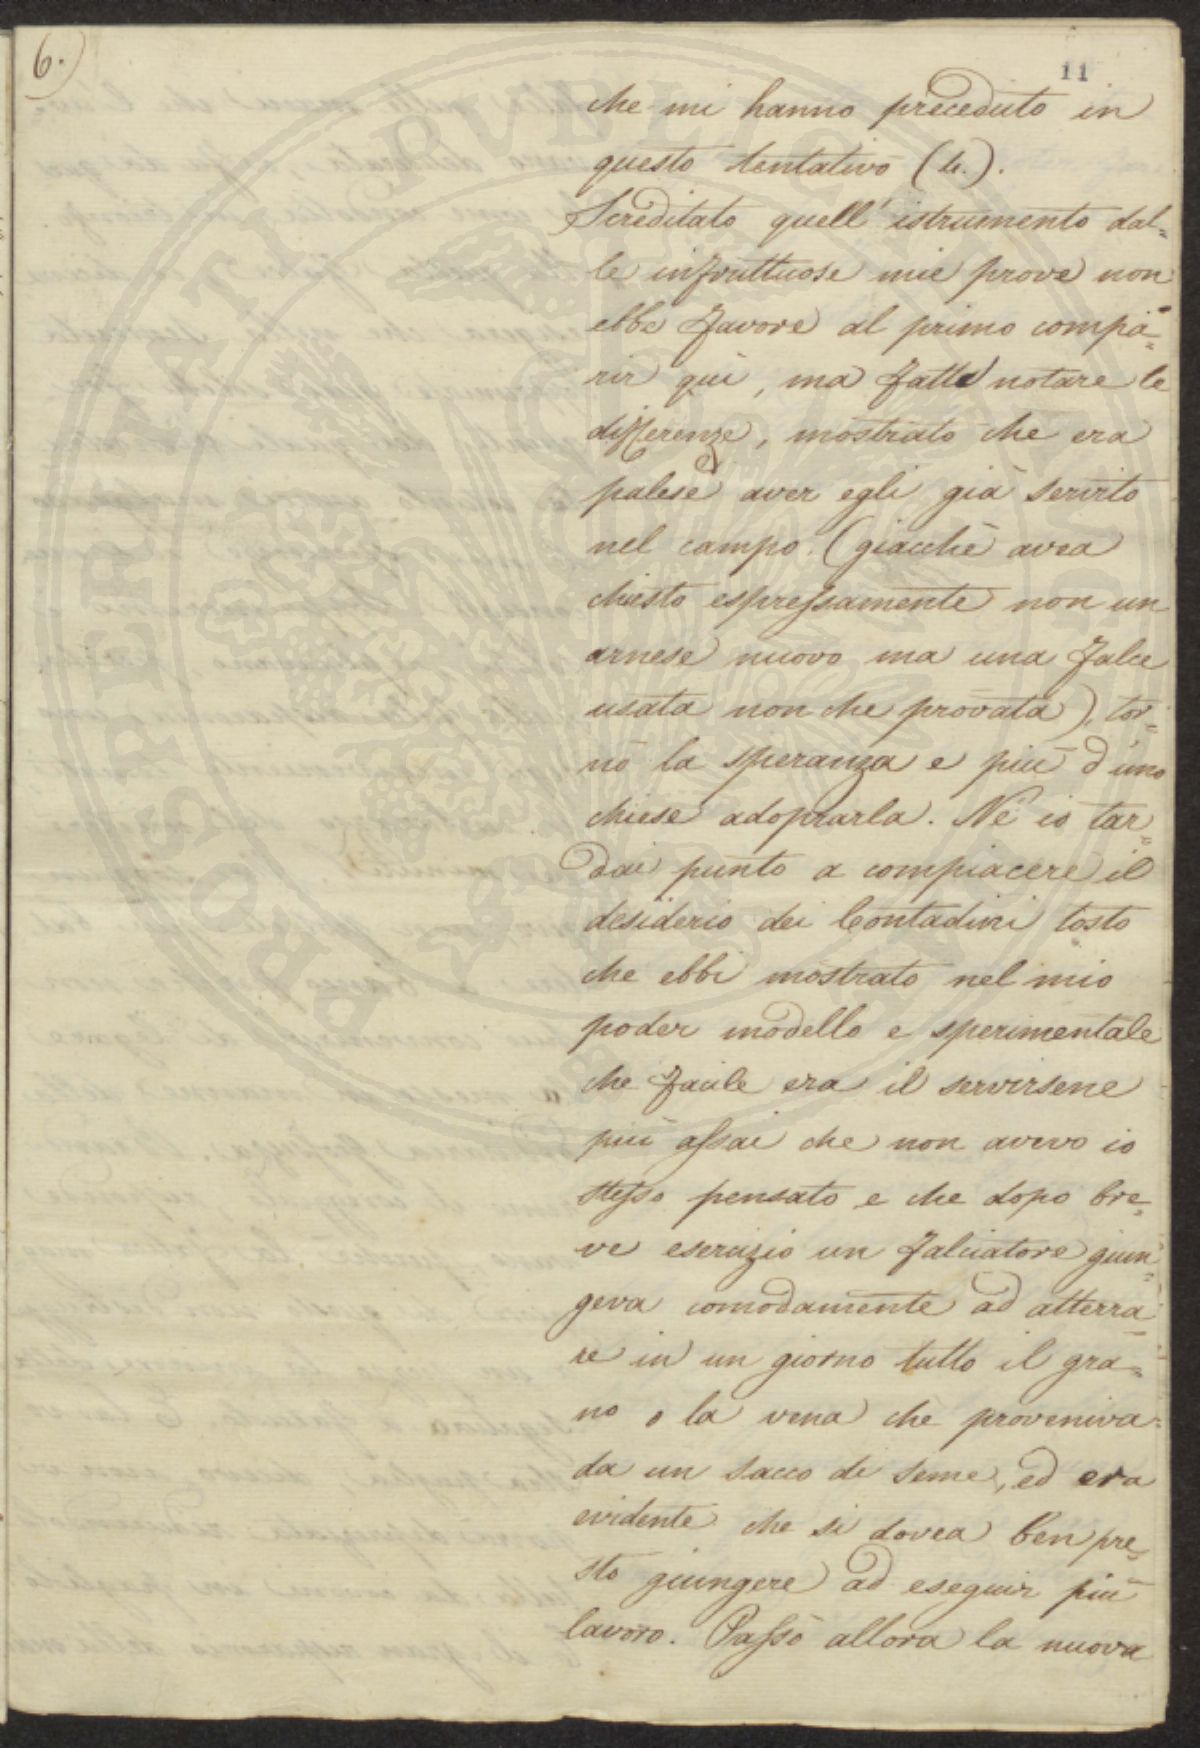 6.)
11
che mi hanno preceduto in
questo tentativo (4.).
Screditato quell' istrumento dal=
le infruttuose mie prove non
ebbe favore al primo compa=
rir quì, ma fatte notare le
differenze, mostrato che era
palese aver egli già servito
nel campo (giacchè avea
chiesto espressamente non un
arnese nuovo ma una falce
usata non che provata), tor=
nò la speranza e più d'uno
chiese adoprarla. Nè io tar=
dai punto a compiacere il
desiderio dei Contadini tosto
che ebbi mostrato nel mio
poder modello e sperimentale
che facile era il servirsene
più assai che non avevo io
stesso pensato e che dopo bre=
ve esercizio un falciatore giun=
geva comodamente ad atterra
re in un giorno tutto il gra=
no o la vena che proveniva
da un sacco di seme, ed era
evidente che si dovea ben pre=
sto giungere ad eseguir più
lavoro. Passò allora la nuova
PROSPERITATI PVBLICAE